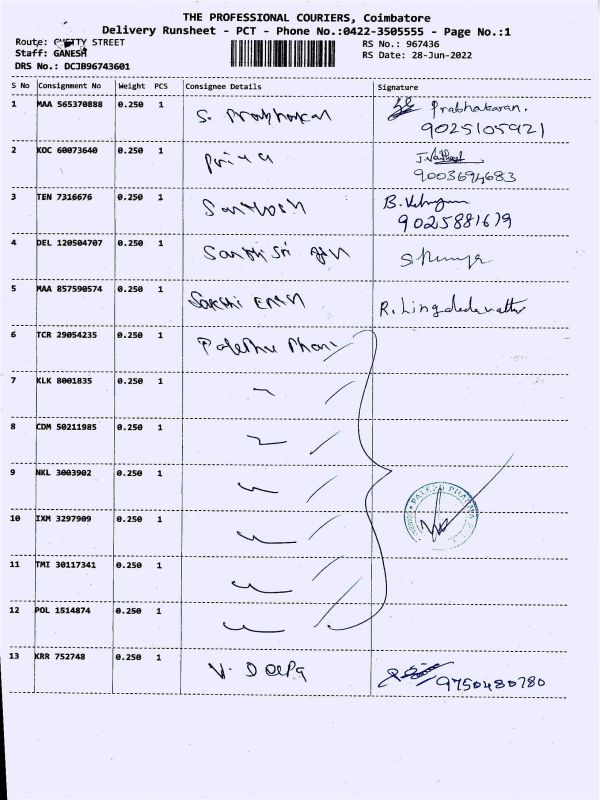 THE PROFESSIONAL COURIERS, Coimbatore
Delivery Runsheet - PCT - Phone No.:0422-3505555 - Page No.:1
Route: CHETTY STREET
RS No.: 967436
Staff: GANESH
RS Date: 28-Jun-2022
DRS No.: DCJB96743601
S No Consignment No Weight PCS Consignee Details Signature
1 MAA 565370888 0.250 1 S. Prabhakar Prabhakaran.
9025105921
2 KOC 60073640 0.250 1 Priya
9003694683
3 TEN 7316676 0.250 1 Santhosh B.
9025881679
4 DEL 120504707 0.250 1 Santhi Sri
5 MAA 857590574 0.250 1 Sakthi R.
6 TCR 29054235 0.250 1
7 KLK 8001835 0.250 1
8 CDM 50211985 0.250 1
9 NKL 3003902 0.250 1
10 IXM 3297909 0.250 1
11 TMI 30117341 0.250 1
12 POL 1514874 0.250 1
13 KRR 752748 0.250 1 V. Deepa 9750480780